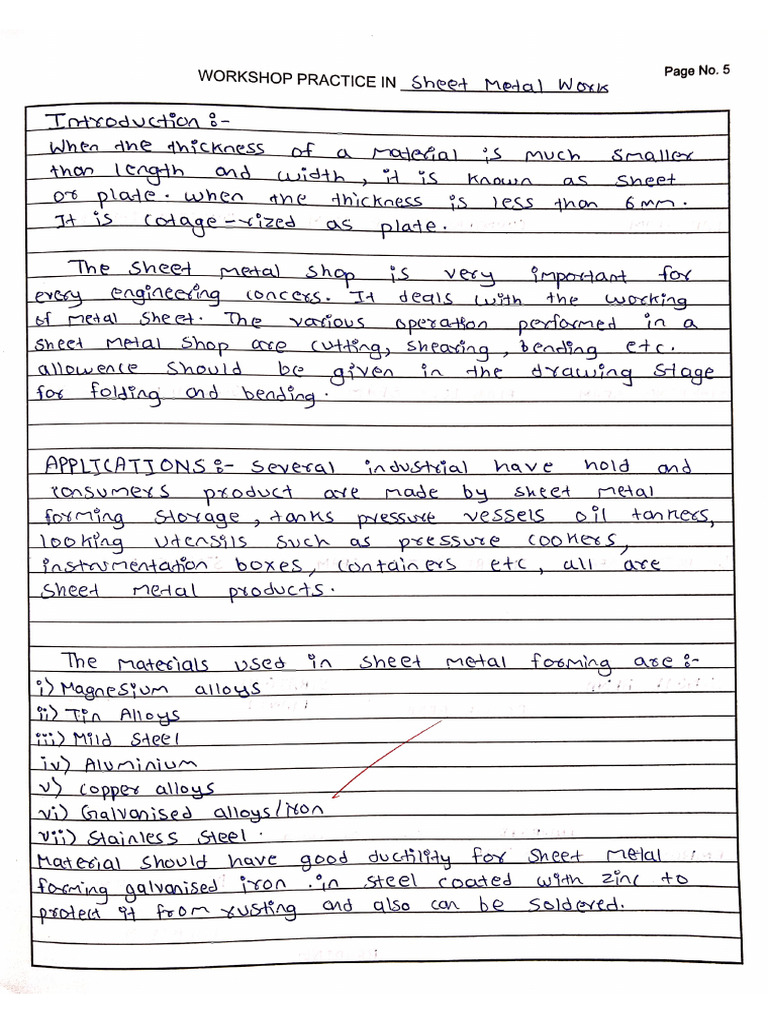 WORKSHOP PRACTICE IN Sheet Metal Work
Page No. 5
Introduction :-
When the thickness of a material is much smaller
than length and width, it is known as sheet
or plate. when the thickness is less than 6mm.
It is cotage-rized as plate.
The sheet metal shop is very important for
every engineering concers. It deals with the working
of metal sheet. The various operation performed in a
sheet metal shop are cutting, shearing, bending etc.
allowence should be given in the drawing stage
for folding and bending.
APPLICATIONS :- Several industrial have hold and
consumers product are made by sheet metal
forming storage, tanks pressure vessels oil tankers,
looking utensils such as pressure cookers,
instrumentation boxes, containers etc, all are
sheet metal products.
The materials used in sheet metal forming are :-
i) Magnesium alloys
ii) Tin Alloys
iii) Mild Steel
iv) Aluminium
v) Copper alloys
vi) Galvanised alloys/iron
vii) Stainless Steel.
Material should have good ductility for sheet metal
forming galvanised iron . in steel coated with zinc to
protect it from rusting and also can be soldered.